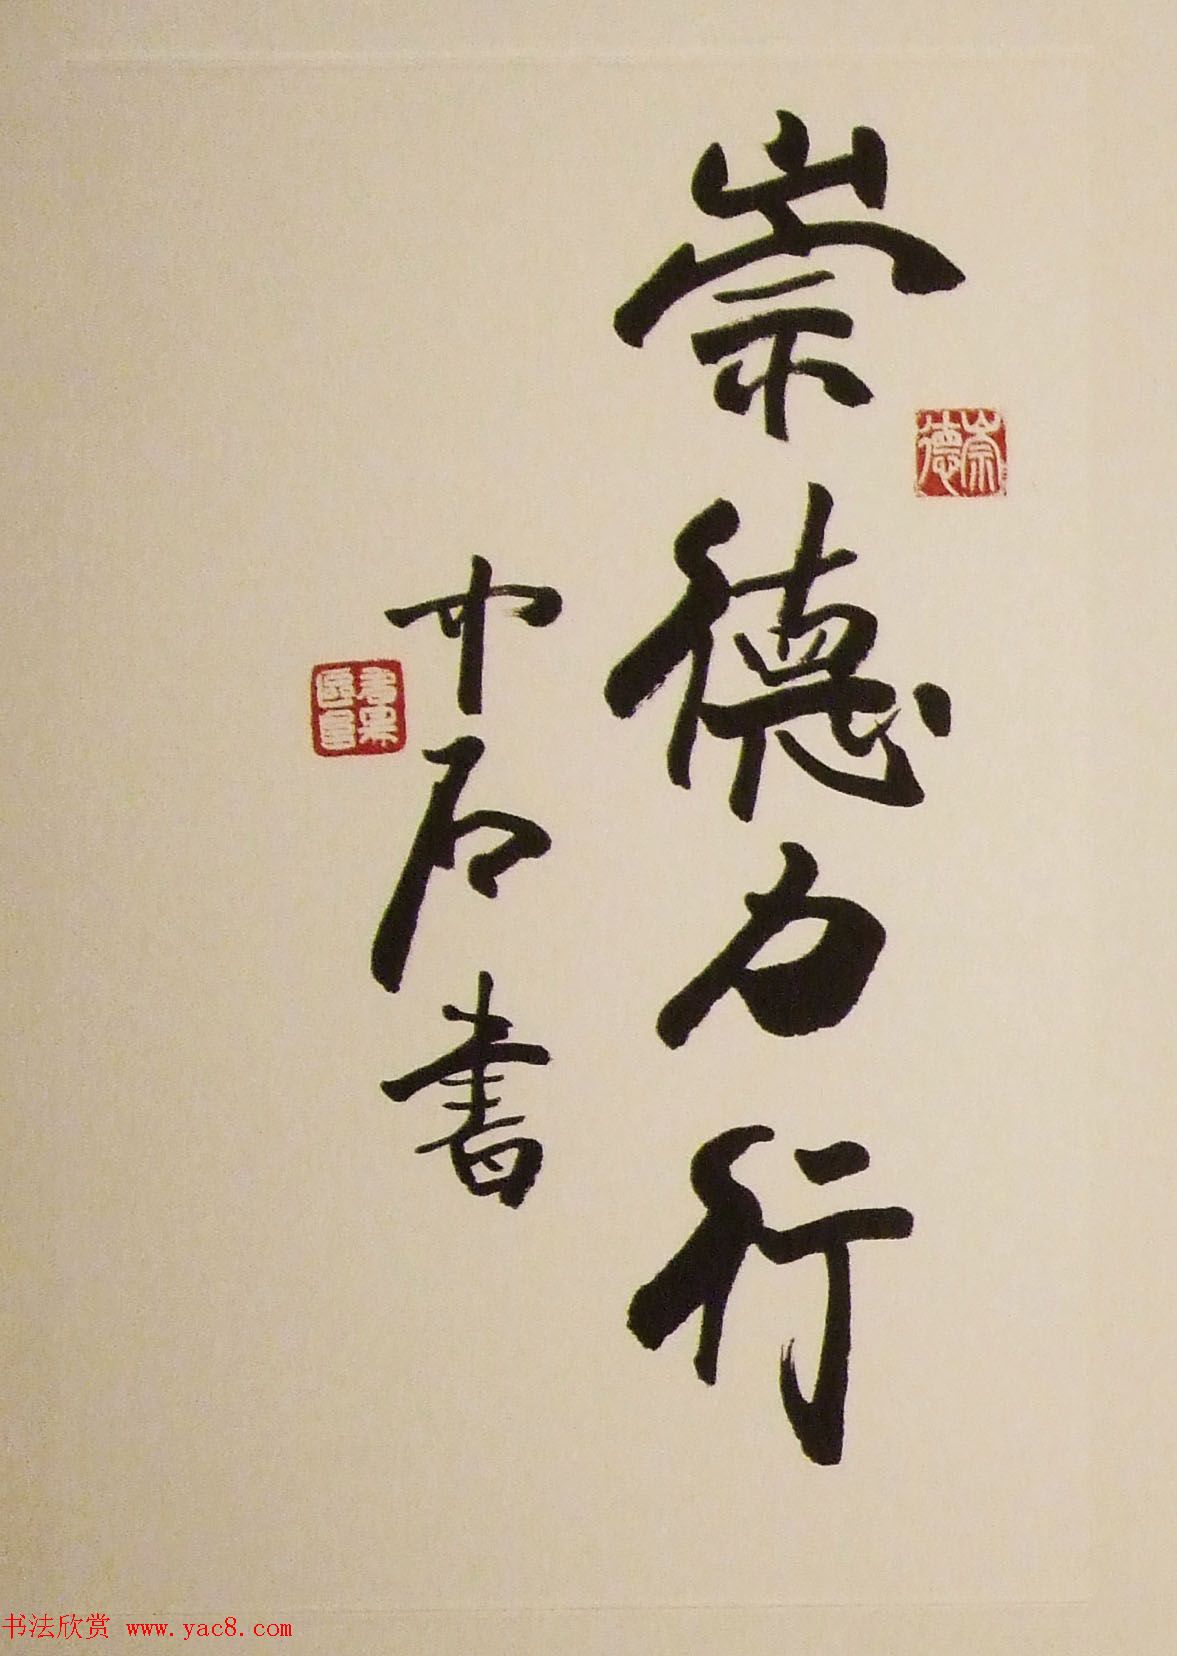 崇德力行
崇德
中石書
书法欣赏 www.yac8.com